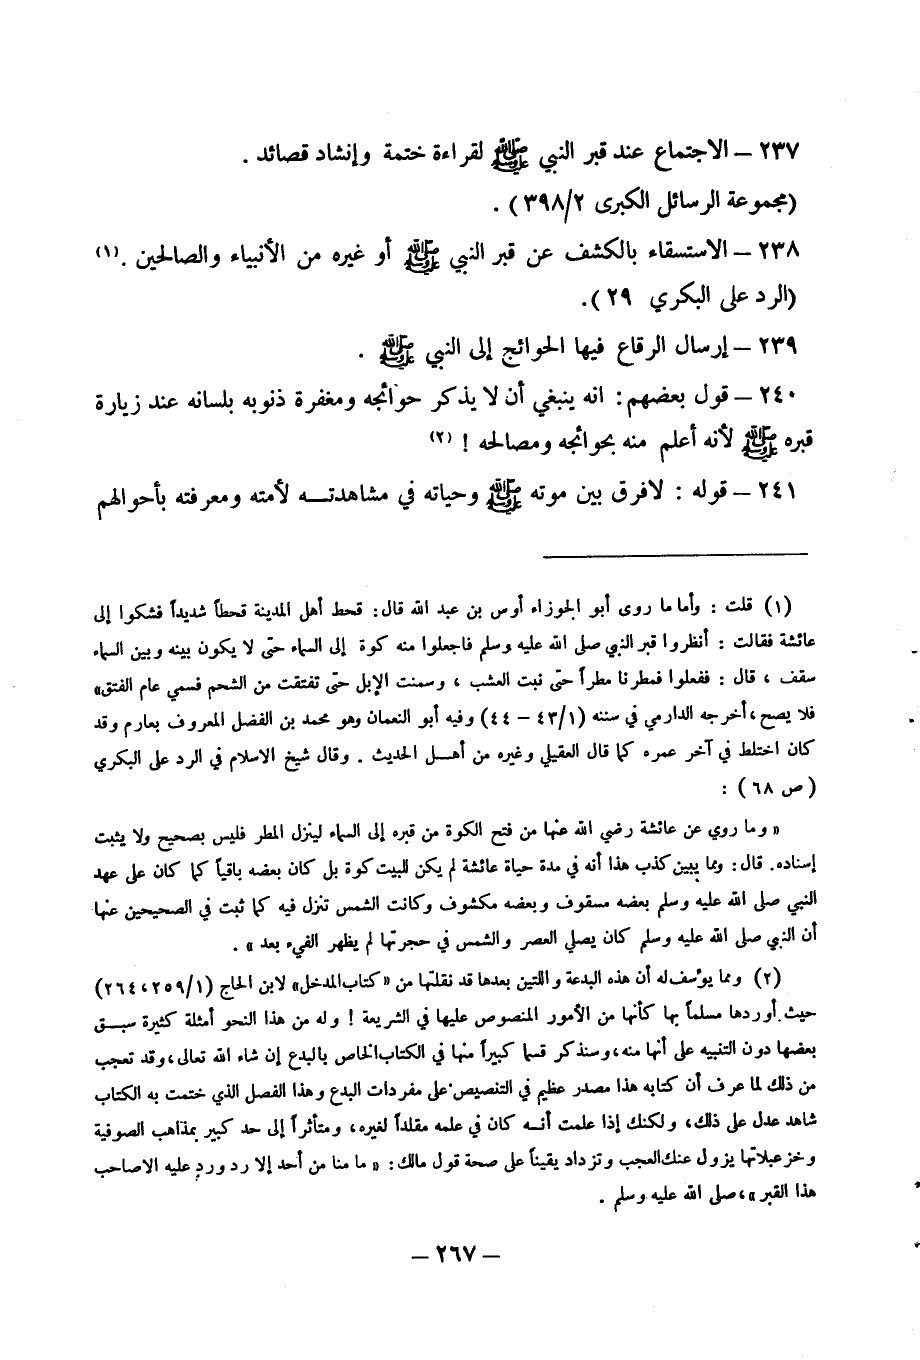 ٢٣٧ – الاجتماع عند قبر النبي ﷺ لقراءة ختمة وإنشاد قصائد .
(مجموعة الرسائل الكبرى ٣٩٨/٢) .
٢٣٨ – الاستسقاء بالكشف عن قبر النبي ﷺ أو غيره من الأنبياء والصالحين .(١)
(الرد على البكري ٢٩).
٢٣٩ – إرسال الرقاع فيها الحوائج إلى النبي ﷺ .
٢٤٠ – قول بعضهم : انه ينبغي أن لا يذكر حوائجه ومغفرة ذنوبه بلسانه عند زيارة
قبره ﷺ لأنه أعلم منه بحوائجه ومصالحه ! (٢)
٢٤١ – قوله : لافرق بين موته ﷺ وحياته في مشاهدتـــه لأمته ومعرفته بأحوالهم
(١) قلت : وأما ما روى أبو الجوزاء أوس بن عبد الله قال: قحط أهل المدينة قحطاً شديداً فشكوا إلى
عائشة فقالت : أنظروا قبر النبي صلى الله عليه وسلم فاجعلوا منه كوة إلى السماء حتى لا يكون بينه وبين السماء
سقف ، قال : ففعلوا فمطرنا مطراً حتى نبت العشب ، وسمنت الإبل حتى تفتقت من الشحم فسمي عام الفتق»
فلا يصح، أخرجه الدارمي في سننه (٤٣/١ – ٤٤) وفيه أبو النعمان وهو محمد بن الفضل المعروف بعارم وقد
كان اختلط في آخر عمره كما قال العقيلي وغيره من أهـــل الحديث . وقال شيخ الاسلام في الرد على البكري
(ص ٦٨) :
« وما روي عن عائشة رضي الله عنها من فتح الكوة من قبره إلى السماء لينزل المطر فليس بصحيح ولا يثبت
إسناده. قال : ومما يبين كذب هذا أنه في مدة حياة عائشة لم يكن للبيت كوة بل كان بعضه باقياً كما كان على عهد
النبي صلى الله عليه وسلم بعضه مسقوف وبعضه مكشوف وكانت الشمس تنزل فيه كما ثبت في الصحيحين عنها
أن النبي صلى الله عليه وسلم كان يصلي العصر والشمس في حجرتها لم يظهر الفيء بعد » .
(٢) ومما يؤسف له أن هذه البدعة واللتين بعدها قد نقلتها من «كتاب المدخل» لابن الحاج (٢٥٩/١، ٢٦٤)
حيث أوردها مسلماً بها كأنها من الأمور المنصوص عليها في الشريعة ! وله من هذا النحو أمثلة كثيرة سبـــق
بعضها دون التنبيه على أنها منه، وسنذكر قسما كبيراً منها في الكتاب الخاص بالبدع إن شاء الله تعالى، وقد تعجب
من ذلك لما عرف أن كتابه هذا مصدر عظيم في التنصيص على مفردات البدع وهذا الفصل الذي ختمت به الكتاب
شاهد عدل على ذلك، ولكنك إذا علمت أنـــه كان في علمه مقلداً لغيره، ومتأثراً إلى حد كبير بمذاهب الصوفية
وخزعبلاتها يزول عنك العجب وتزداد يقيناً على صحة قول مالك: « ما منا من أحد إلا رد ورد عليه الاصاحب
هذا القبر »، صلى الله عليه وسلم .
– ٢٦٧ –